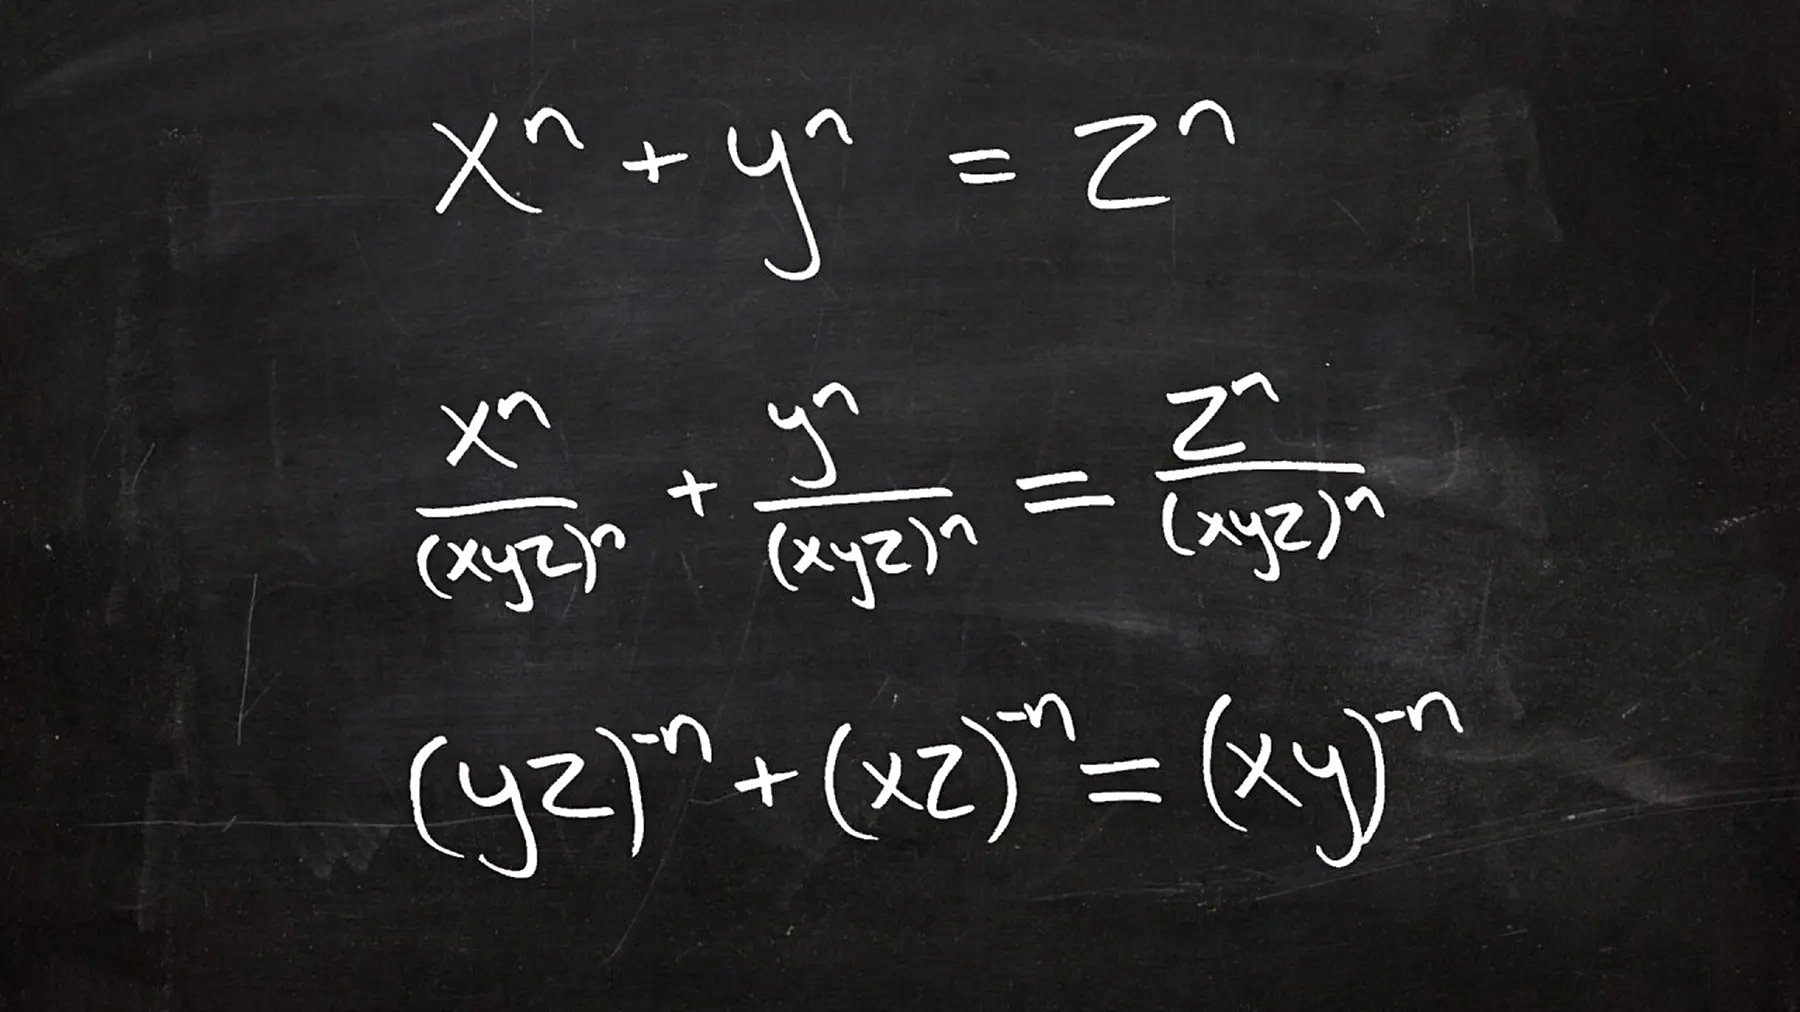 xⁿ + yⁿ = zⁿ
xⁿ/(xyz)ⁿ + yⁿ/(xyz)ⁿ = zⁿ/(xyz)ⁿ
(yz)⁻ⁿ + (xz)⁻ⁿ = (xy)⁻ⁿ